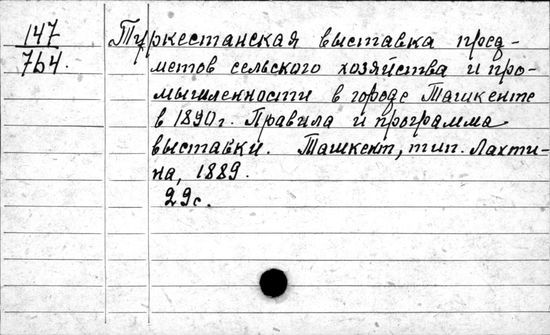 147
764.
Туркестанская выставка пред-
метов сельского хозяйства и про-
мышленности в городе Ташкенте
в 1890 г. Правила и программа
выставки. Ташкент, тип. Лахти-
на, 1889.
29с.